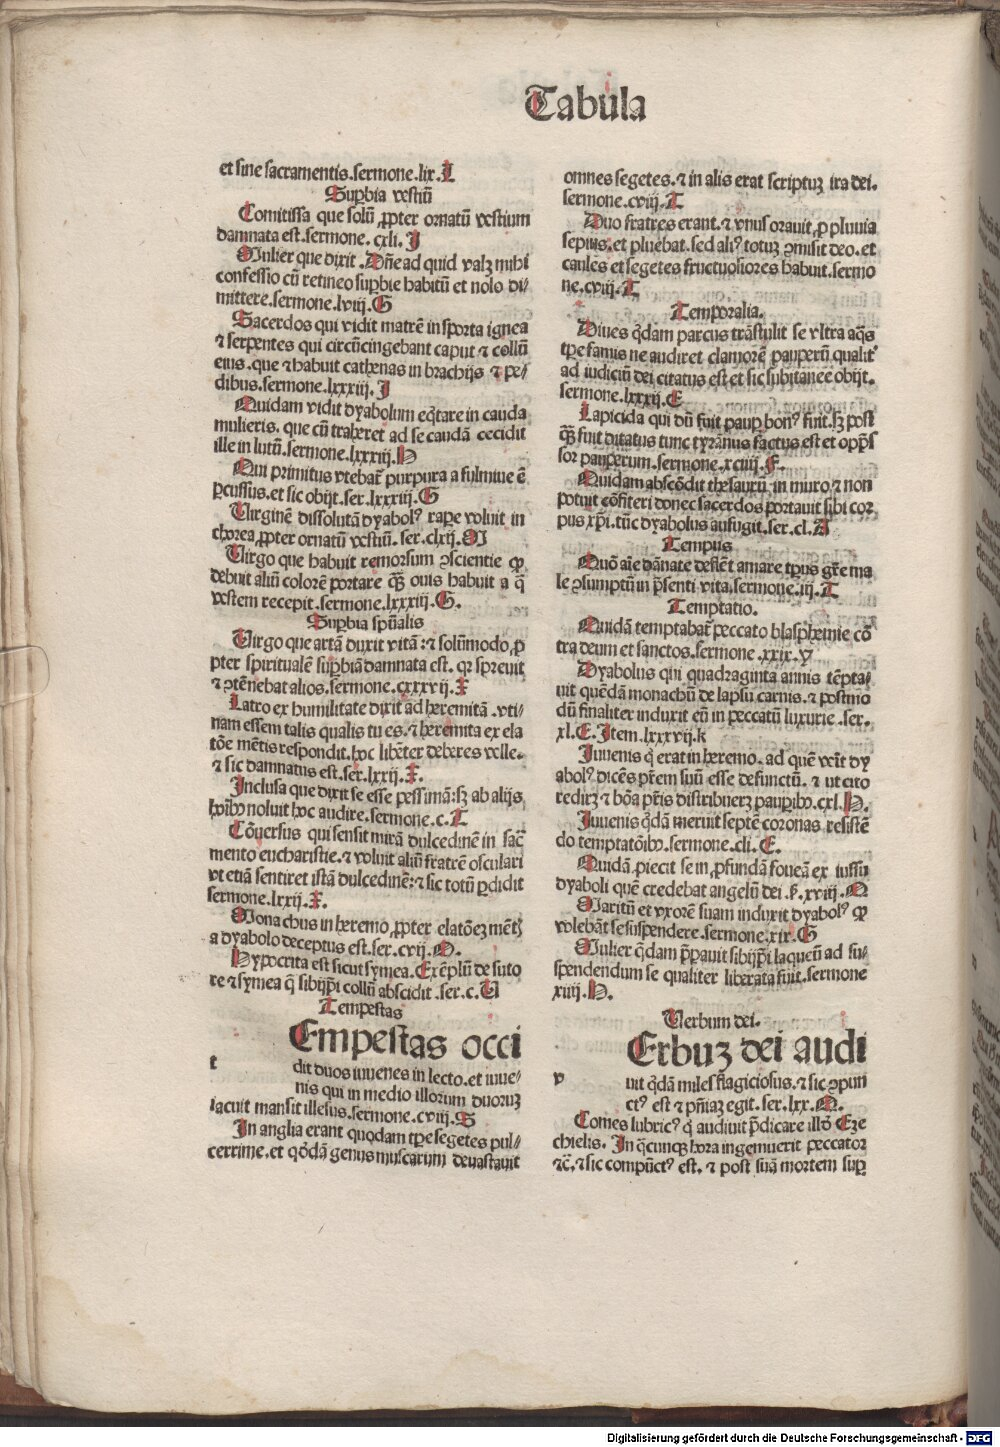 Tabula
et sine sacramentis.sermone.lix.L
Suꝑbia vestiū
Comitissa que solū ꝓpter ornatū vestium
damnata est.sermone. cxli. I
Mulier que dixit .Dn̄e ad quid valꝫ mihi
confessio cū retineo suꝑbie habitū et nolo di⸗
mittere.sermone.lviij.G
Sacerdos qui vidit matrē in sporta ignea
⁊ serpentes qui circūcingebant caput ⁊ collū
eius.que ⁊ habuit cathenas in brachijs ⁊ pe⸗
dibus.sermone.lxxxiij.I
Quidam vidit dyabolum eq̄tare in cauda
mulieris. que cū traheret ad se caudā cecidit
ille in lutū.sermone.lxxxiij.H
Qui primitus vtebat̃ purpura a fulmine ē
ꝑcussus.et sic obijt.ser.lxxxiij.G
Virginē dissolutā dyabolꝰ raꝑe voluit in
chorea ꝓpter ornatū vestiū. ser.clxij.M
Virgo que habuit remorsum ꝯscientie ꝙ
debuit aliū colorē portare q̄ꝫ ouis habuit a q̄
vestem recepit.sermone.lxxxiij.G.
Suꝑbia spūalis
Virgo que artā duxit vitā:⁊ solūmodo ꝓ
pter spiritualē suꝑbiā damnata est. qꝛ spreuit
⁊ ꝯtēnebat alios.sermone.cxxxvij.X
Latro ex humilitate dixit ad heremitā .vti⸗
nam essem talis qualis tu es.⁊ heremita ex ela
tōe mētis respondit.hoc libēter deberes velle.
⁊ sic damnatus est.ser.lxxij.X.
Inclusa que dixit se esse pessimā:sꝫ ab alijs
hoībꝰ noluit hoc audire.sermone.c.T
Cōuersus qui sensit mirā dulcedinē in sac̄
mento eucharistie.⁊ voluit aliū fratrē osculari
vt etiā sentiret istā dulcedinē:⁊ sic totū ꝑdidit
sermone.lxxij.X.
Monachus in heremo ꝓpter elatōeꝫ mēt̄
a dyabolo deceptus est.ser.cvij.M.
Hypocrita est sicut symea. Exēplū de suto
re ⁊ symea q̄ sibijpi collū abscidit .ser.c.V
Tempestas
t
Empestas occi
dit duos iuuenes in lecto.et iuue⸗
nis qui in medio illorum duoruꝫ
iacuit mansit illesus.sermone.cviij.S
In anglia erant quodam tꝑe segetes pul⸗
cerrime.et qḋdā genus muscarum deuastauit
omnes segetes.⁊ in alis erat scriptuꝫ ira dei.
sermone.cviij.T
Duo fratres erant.⁊ vnus orauit ꝓ pluuia
sepius.et pluebat.sed aliꝰ totuꝫ ꝯmisit deo.et
caules et segetes fructuosiores habuit.sermo
ne.cviij.T
Temporalia.
Diues qḋam parcus trāstulit se vltra aq̄s
tꝑe famis ne audiret clamorē pauperū qualit̕
ad iudiciū dei citatus est et sic subitanee obijt.
sermone.lxxxij.E
Lapicida qui dū fuit pauꝑ bonꝰ fuit.sꝫ post
q̄ꝫ fuit ditatus tunc tyrānus factus est et opp̄s
sor pauperum.sermone.xciiij.F.
Quidam abscōdit thesaurū in muro ⁊ non
potuit cōfiteri donec sacerdos portauit sibi cor
pus xp̄i.tūc dyabolus aufugit.ser.cl.A
Tempus
Quō aīe dānate deflēt amare tp̄us gr̄e ma
le ꝯsumptū in p̄senti vita.sermone.iij.T
Temptatio.
Quidā temptabat̃ peccato blasphemie cō
tra deum et sanctos.sermone .xxix.y
Dyabolus qui quadraginta annis tēpta⸗
uit quēdā monachū de lapsu carnis.⁊ postmo
dū finaliter induxit eū in peccatū luxurie .ser.
xl.E.Item.lxxxvij.k
Iuuenis q̇ erat in heremo. ad quē vēit dy
abolꝰ dicēs pr̄em suū esse defunctū. ⁊ ut cito
rediꝛꝫ ⁊ bōa pr̄is distribueꝛꝫ pauꝑibꝰ.cxl.H.
Iuuenis qḋā meruit septē coronas resistē
do temptatōibꝰ.sermone.cli.E.
Quidā ꝓiecit se in ꝓfundā foueā ex iussu
dyaboli quē credebat angelū dei .ẜ.xviij.N
Maritū et vxorē suam induxit dyabolꝰ ꝙ
volebāt se suspendere.sermone.xix.G
Mulier qḋam p̄ꝑauit sibijp̄i laqueū ad su⸗
spendendum se qualiter liberata fuit.sermone
xiiij.H.
Verbum dei.
v
Erbuꝫ dei audi
uit qḋā miles flagiciosus.⁊ sic ꝯpun
ctꝰ est ⁊ pn̄iaꝫ egit.ser.lxx.M.
Comes lubricꝰ q̇ audiuit p̄dicare illḋ Eze
chielis. In q̄cunqꝫ hora ingemuerit peccator
⁊c̄.⁊ sic compūctꝰ est. ⁊ post suā mortem suꝑ
Digitalisierung gefördert durch die Deutsche Forschungsgemeinschaft - DFG